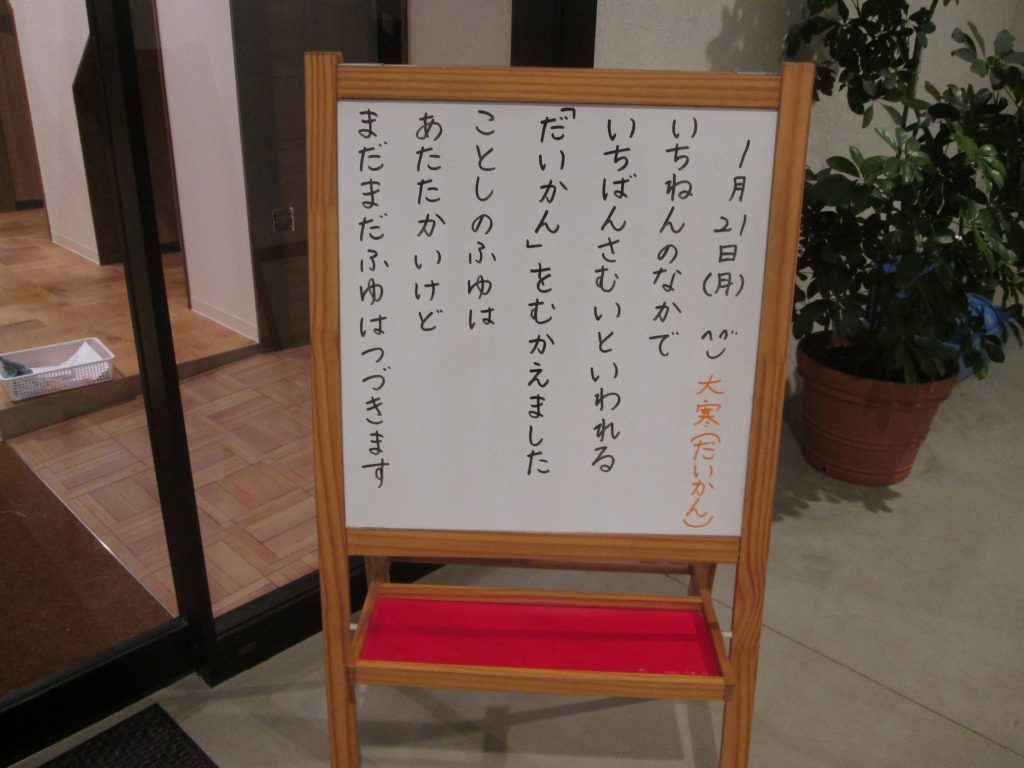 1月21日(月) ^^
大寒(だいかん)
いちねんのなかで
いちばんさむいといわれる
「だいかん」をむかえました
ことしのふゆは
あたたかいけど
まだまだふゆはつづきます